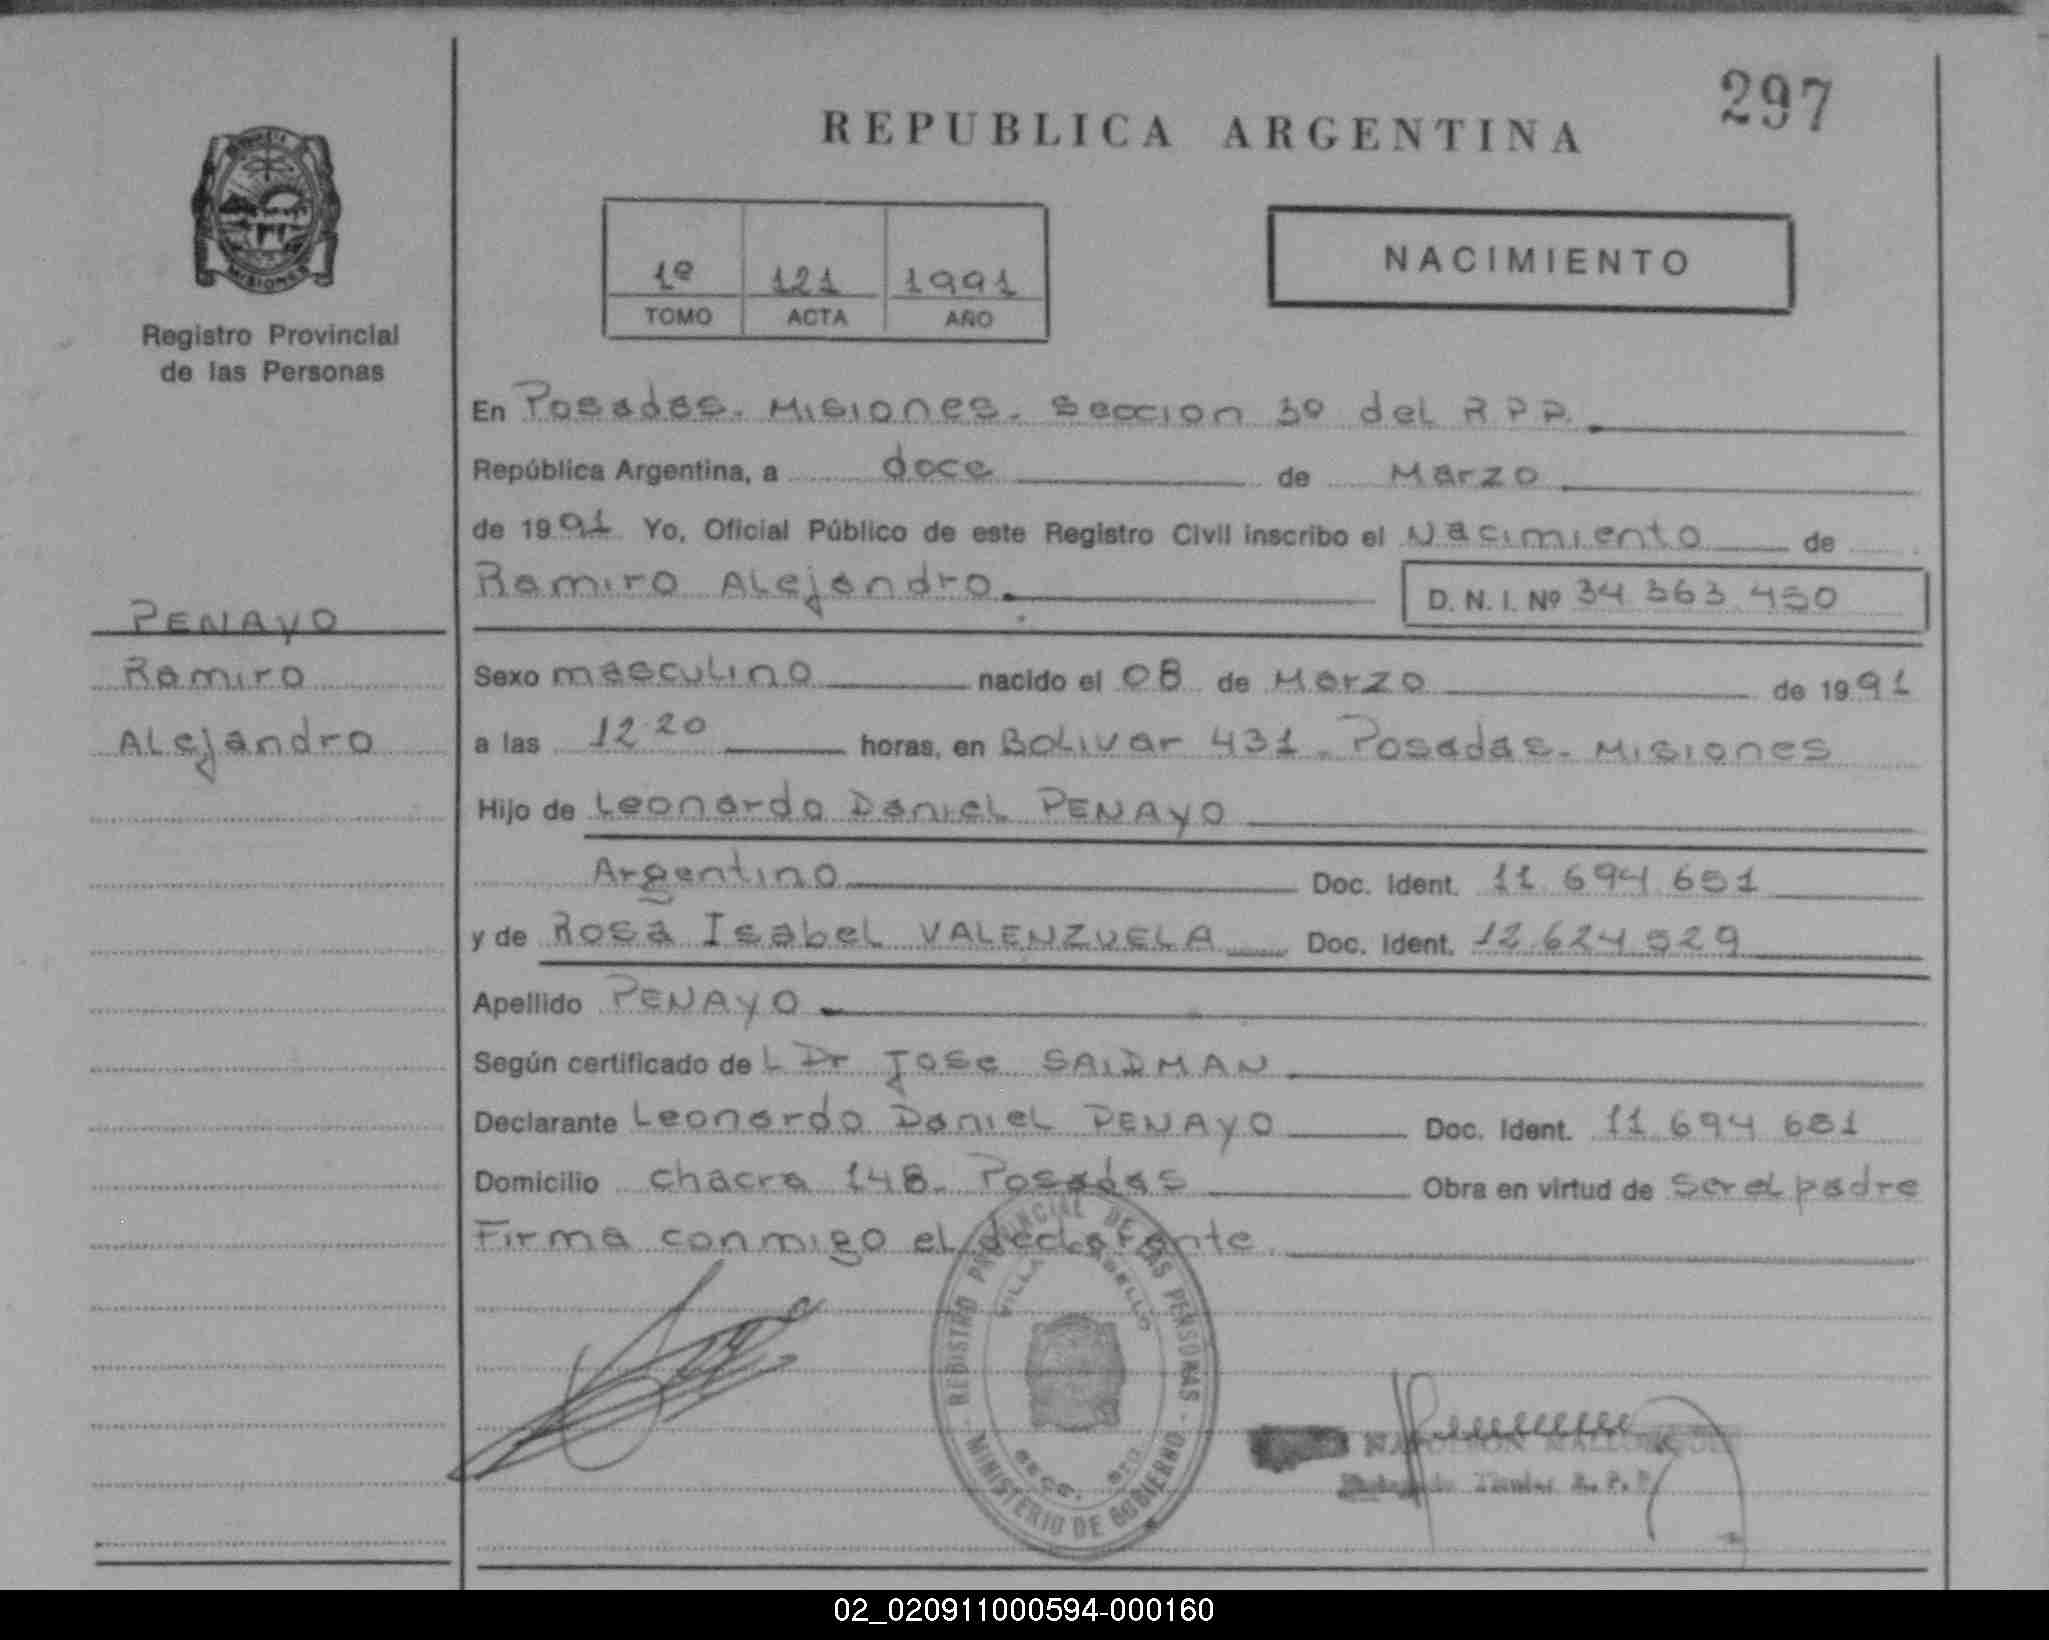 297
REPUBLICA ARGENTINA
NACIMIENTO
1º 121 1991
TOMO ACTA AÑO
MISIONES
Registro Provincial
de las Personas
PENAYO
Ramiro
Alejandro
En Posadas. Misiones. Seccion 3º del R P P.
República Argentina, a doce de Marzo
de 1991 Yo, Oficial Público de este Registro Civil inscribo el Nacimiento de
Ramiro Alejandro. D. N. I. Nº 34 363 450
Sexo masculino nacido el 08 de Marzo de 1991
a las 12 20 horas, en Bolivar 431 - Posadas - Misiones
Hijo de Leonardo Daniel PENAYO
Argentino Doc. Ident. 11 694 651
y de Rosa Isabel VALENZUELA Doc. Ident. 12.624.529
Apellido PENAYO
Según certificado del Dr Jose SAIDMAN
Declarante Leonardo Daniel PENAYO Doc. Ident. 11 694 651
Domicilio chacra 148 - Posadas Obra en virtud de ser el padre
Firma conmigo el declarante
REGISTRO PROVINCIAL DE LAS PERSONAS - MINISTERIO DE GOBIERNO
VILLA
NAPOLEON
R. P. P.
02_020911000594-000160